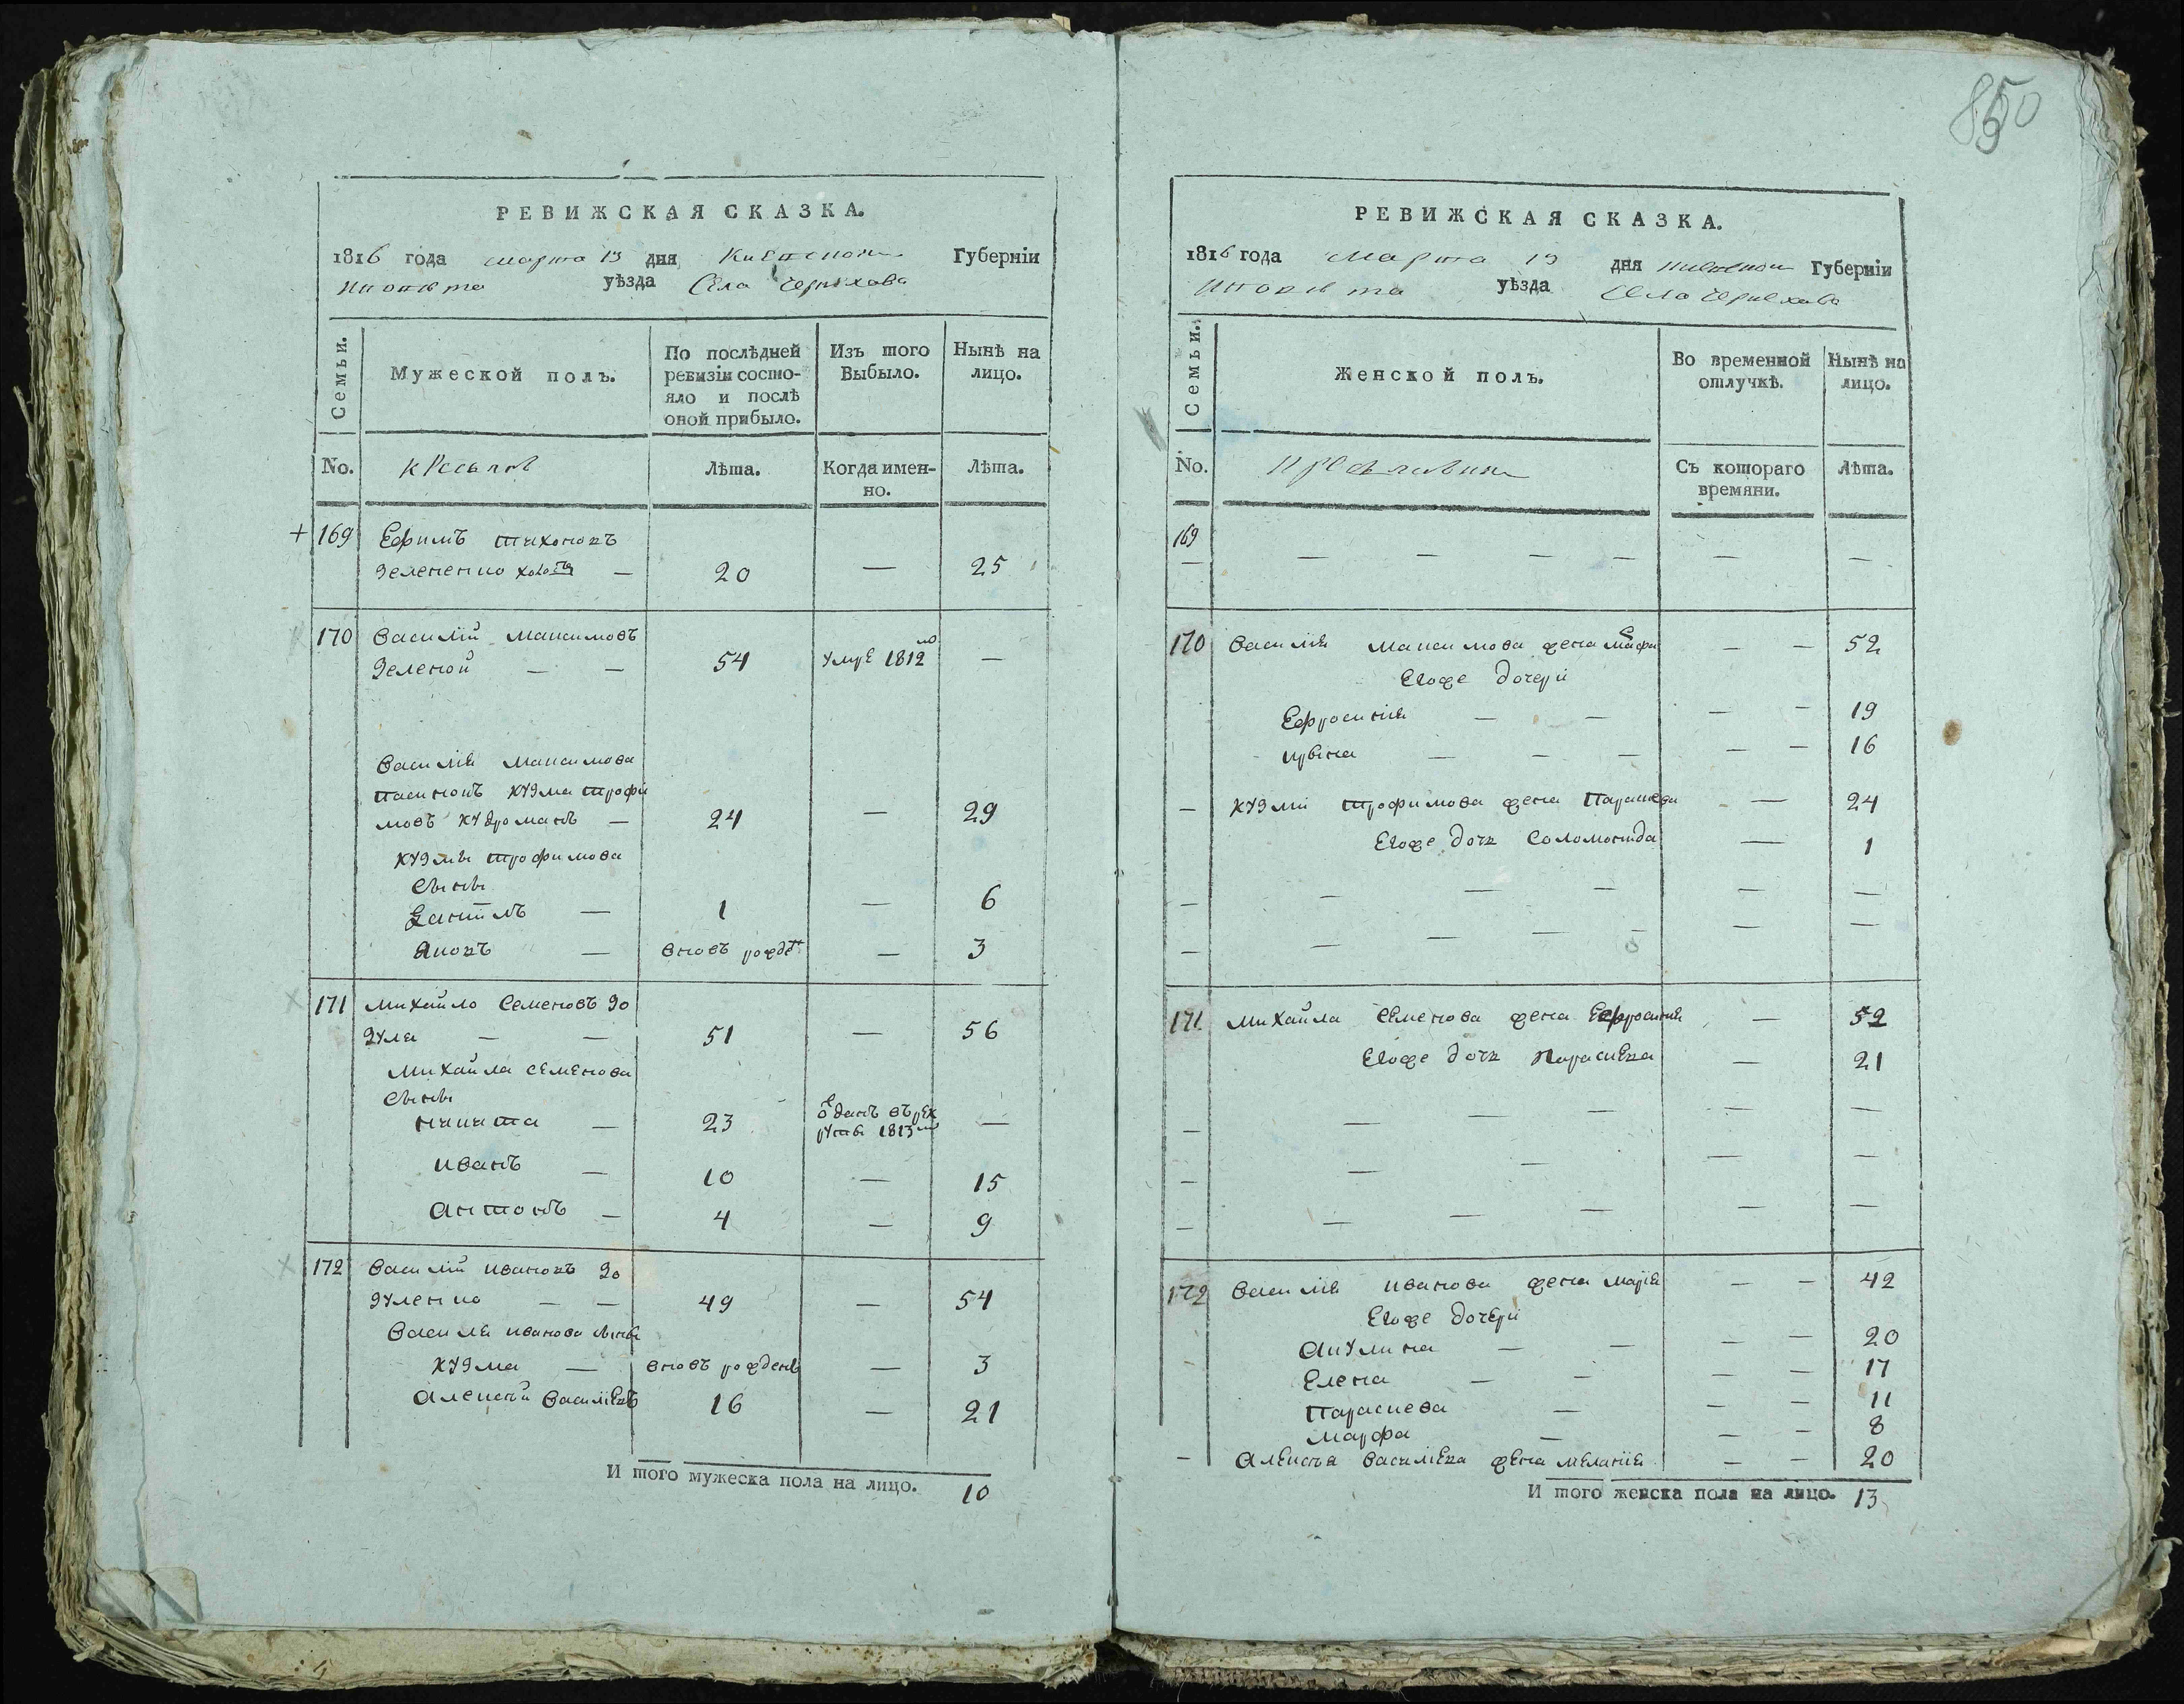 850
РЕВИЖСКАЯ СКАЗКА.
1816 года марта 13 дня Киевской Губерніи
уѣзда Села Черняхова
Семьи.
Мужеской полъ.
По послѣдней ревизіи состояло и послѣ оной прибыло.
Изъ того Выбыло.
Нынѣ на лицо.
No.
Лѣта.
Когда именно.
Лѣта.
169 Ефимъ Тихоновъ
Зелененко холостъ — 20 — 25
170 Василій Максимовъ
Зеленой — — 54 умре 1812 го —
Василия Максимова
пасинокъ Кузма Трофи
мовъ — 24 — 29
Кузмы Трофимова
сыны
Данiилъ — 1 — 6
Яковъ — вновь рожден — 3
171 Михайло Семеновъ Зо
зуля — — 51 — 56
Михайла Семенова
сыны
Никита — 23 оданъ въ рек
руты 1813 го —
Иванъ — 10 — 15
Антонъ — 4 — 9
172 Василій Ивановъ Зо
зуленко — — 49 — 54
Василия Иванова сыны
Кузма — вновь рожденъ — 3
Алексѣй Василіевъ 16 — 21
И того мужеска пола на лицо. 10
РЕВИЖСКАЯ СКАЗКА.
1816 года Марта 13 дня Киевской Губерніи
уѣзда Села Черняхова
Семьи.
Женской полъ.
Во временной отлучкѣ.
Нынѣ на лицо.
No.
Съ котораго времяни.
Лѣта.
169 — — — — — —
170 Василия Максимова жена Марфа — — 52
Егоже дочери
Ефросиния — — — — 19
Ирина — — — — — 16
— Кузми Трофимова жена Параскева — 24
Егоже дочь Соломонида — 1
— — — — — —
— — — — — — —
171 Михайла Семенова жена Ефросиния — 52
Егоже дочь Параскева — 21
— — — — — —
— — — — —
— — — — — —
172 Василия Иванова жена Мария — — 42
Егоже дочери
Акулина — — — — 20
Елена — — — — 17
Параскева — — — 11
Марфа — — — 8
— Алексѣя Василіева жена Мелания — — 20
И того женска пола на лицо. 13